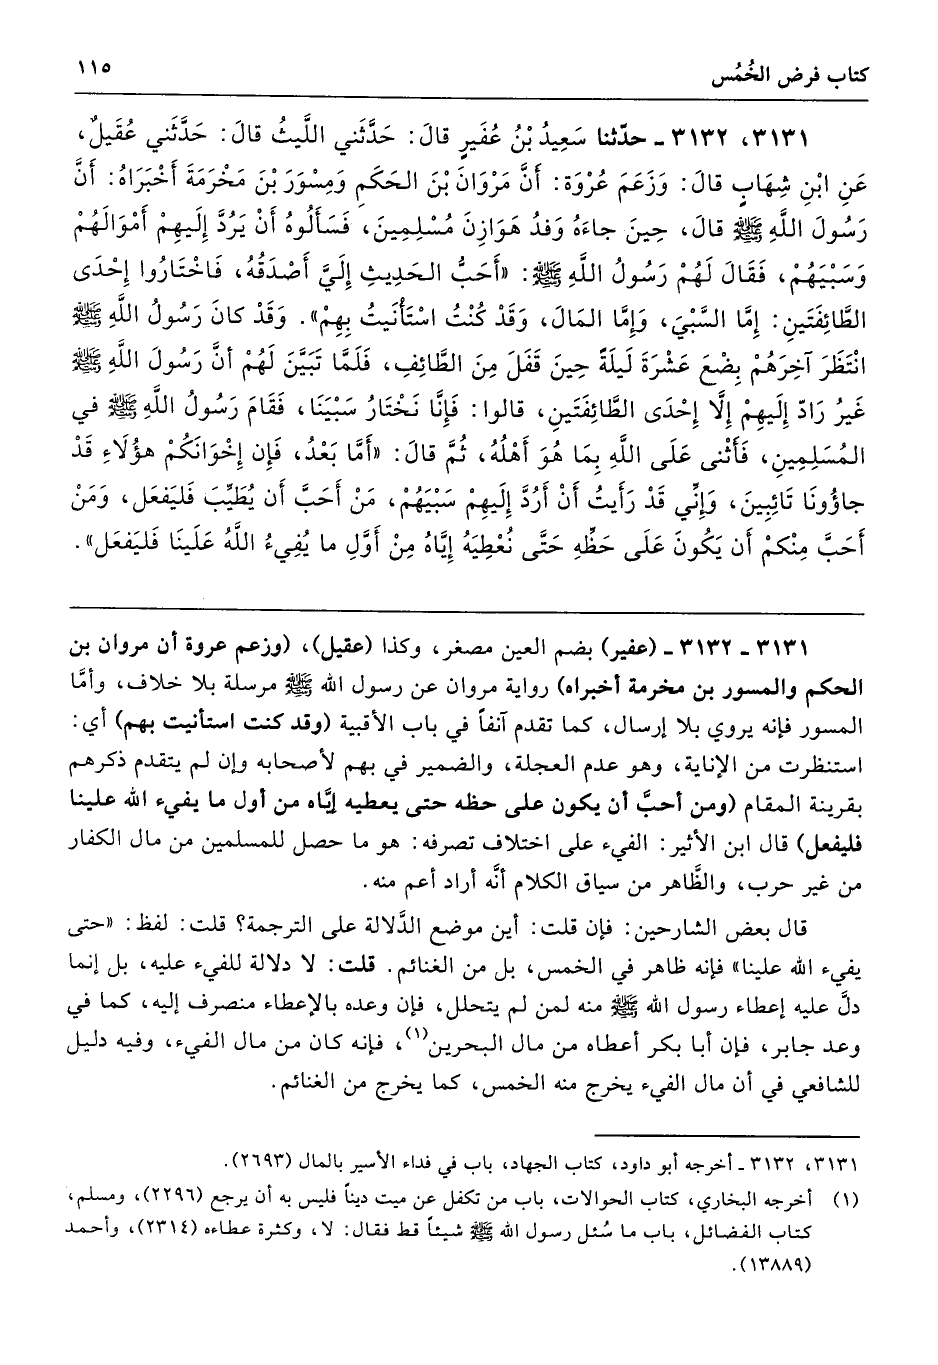 كتاب فرض الخُمُس
١١٥
٣١٣١، ٣١٣٢ ـ حدّثنا سَعِيدُ بْنُ عُفَيرٍ قالَ: حَدَّثَني اللَّيثُ قالَ: حَدَّثَني عُقَيلٌ،
عَنِ ابْنِ شِهَابٍ قالَ: وَزَعَمَ عُرْوَةُ: أَنَّ مَرْوَانَ بْنَ الحَكَمِ وَمِسْوَرَ بْنَ مَخْرَمَةَ أَخْبَرَاهُ: أَنَّ
رَسُولَ اللَّهِ ﷺ قالَ، حِينَ جاءَهُ وَفدُ هَوَازِنَ مُسْلِمِينَ، فَسَأَلُوهُ أَنْ يَرُدَّ إِلَيهِمْ أَمْوَالَهُمْ
وَسَبْيَهُمْ، فَقَالَ لَهُمْ رَسُولُ اللَّهِ ﷺ: «أَحَبُّ الحَدِيثِ إِلَيَّ أَصْدَقُهُ، فَاخْتَارُوا إِحْدَى
الطَّائِفَتَينِ: إِمَّا السَّبْيَ، وَإِمَّا المَالَ، وَقَدْ كُنْتُ اسْتَأْنَيتُ بِهِمْ». وَقَدْ كانَ رَسُولُ اللَّهِ ﷺ
انْتَظَرَ آخِرَهُمْ بِضْعَ عَشْرَةَ لَيلَةً حِينَ قَفَلَ مِنَ الطَّائِفِ، فَلَمَّا تَبَيَّنَ لَهُمْ أَنَّ رَسُولَ اللَّهِ ﷺ
غَيرُ رَادٍّ إِلَيهِمْ إِلَّا إِحْدَى الطَّائِفَتَينِ، قالوا: فَإِنَّا نَخْتَارُ سَبْيَنَا، فَقَامَ رَسُولُ اللَّهِ ﷺ في
المُسَلِمِينِ، فَأَثْنى عَلَى اللَّهِ بِمَا هُوَ أَهْلُهُ، ثُمَّ قالَ: «أَمَّا بَعْدُ، فَإِن إِخْوَانَكُمْ هؤُلَاءِ قَدْ
جاؤُونَا تَائِبِينَ، وَإِنِّي قَدْ رَأَيتُ أَنْ أَرُدَّ إِلَيهِمْ سَبْيَهُمْ، مَنْ أَحَبَّ أَن يُطَيِّبَ فَليَفعَل، وَمَنْ
أَحَبَّ مِنْكمْ أَن يَكُونَ عَلَى حَظِّهِ حَتَّى نُعْطِيَهُ إِيَّاهُ مِنْ أَوَّلِ ما يُفِيءُ اللَّهُ عَلَينَا فَليَفعَل».
٣١٣١ ـ ٣١٣٢ ـ (عفير) بضم العين مصغر، وكذا (عقيل)، (وزعم عروة أن مروان بن
الحكم والمسور بن مخرمة أخبراه) رواية مروان عن رسول الله ﷺ مرسلة بلا خلاف، وأمَّا
المسور فإنه يروي بلا إرسال، كما تقدم آنفاً في باب الأقبية (وقد كنت استأنيت بهم) أي:
استنظرت من الإناية، وهو عدم العجلة، والضمير في بهم لأصحابه وإن لم يتقدم ذكرهم
بقرينة المقام (ومن أحبَّ أن يكون على حظه حتى يعطيه إيَّاه من أول ما يفيء الله علينا
فليفعل) قال ابن الأثير: الفيء على اختلاف تصرفه: هو ما حصل للمسلمين من مال الكفار
من غير حرب، والظَّاهر من سياق الكلام أنَّه أراد أعم منه.
قال بعض الشارحين: فإن قلت: أين موضع الدَّلالة على الترجمة؟ قلت: لفظ: «حتى
يفيء الله علينا» فإنه ظاهر في الخمس، بل من الغنائم. قلت: لا دلالة للفيء عليه، بل إنما
دلَّ عليه إعطاء رسول الله ﷺ منه لمن لم يتحلل، فإن وعده بالإعطاء منصرف إليه، كما في
وعد جابر، فإن أبا بكر أعطاه من مال البحرين(١)، فإنه كان من مال الفيء، وفيه دليل
للشافعي في أن مال الفيء يخرج منه الخمس، كما يخرج من الغنائم.
٣١٣١، ٣١٣٢ ـ أخرجه أبو داود، كتاب الجهاد، باب في فداء الأسير بالمال (٢٦٩٣).
(١) أخرجه البخاري، كتاب الحوالات، باب من تكفل عن ميت ديناً فليس به أن يرجع (٢٢٩٦)، ومسلم،
كتاب الفضائل، باب ما سُئل رسول الله ﷺ شيئاً قط فقال: لا، وكثرة عطاءه (٢٣١٤)، وأحمد
(١٣٨٨٩).